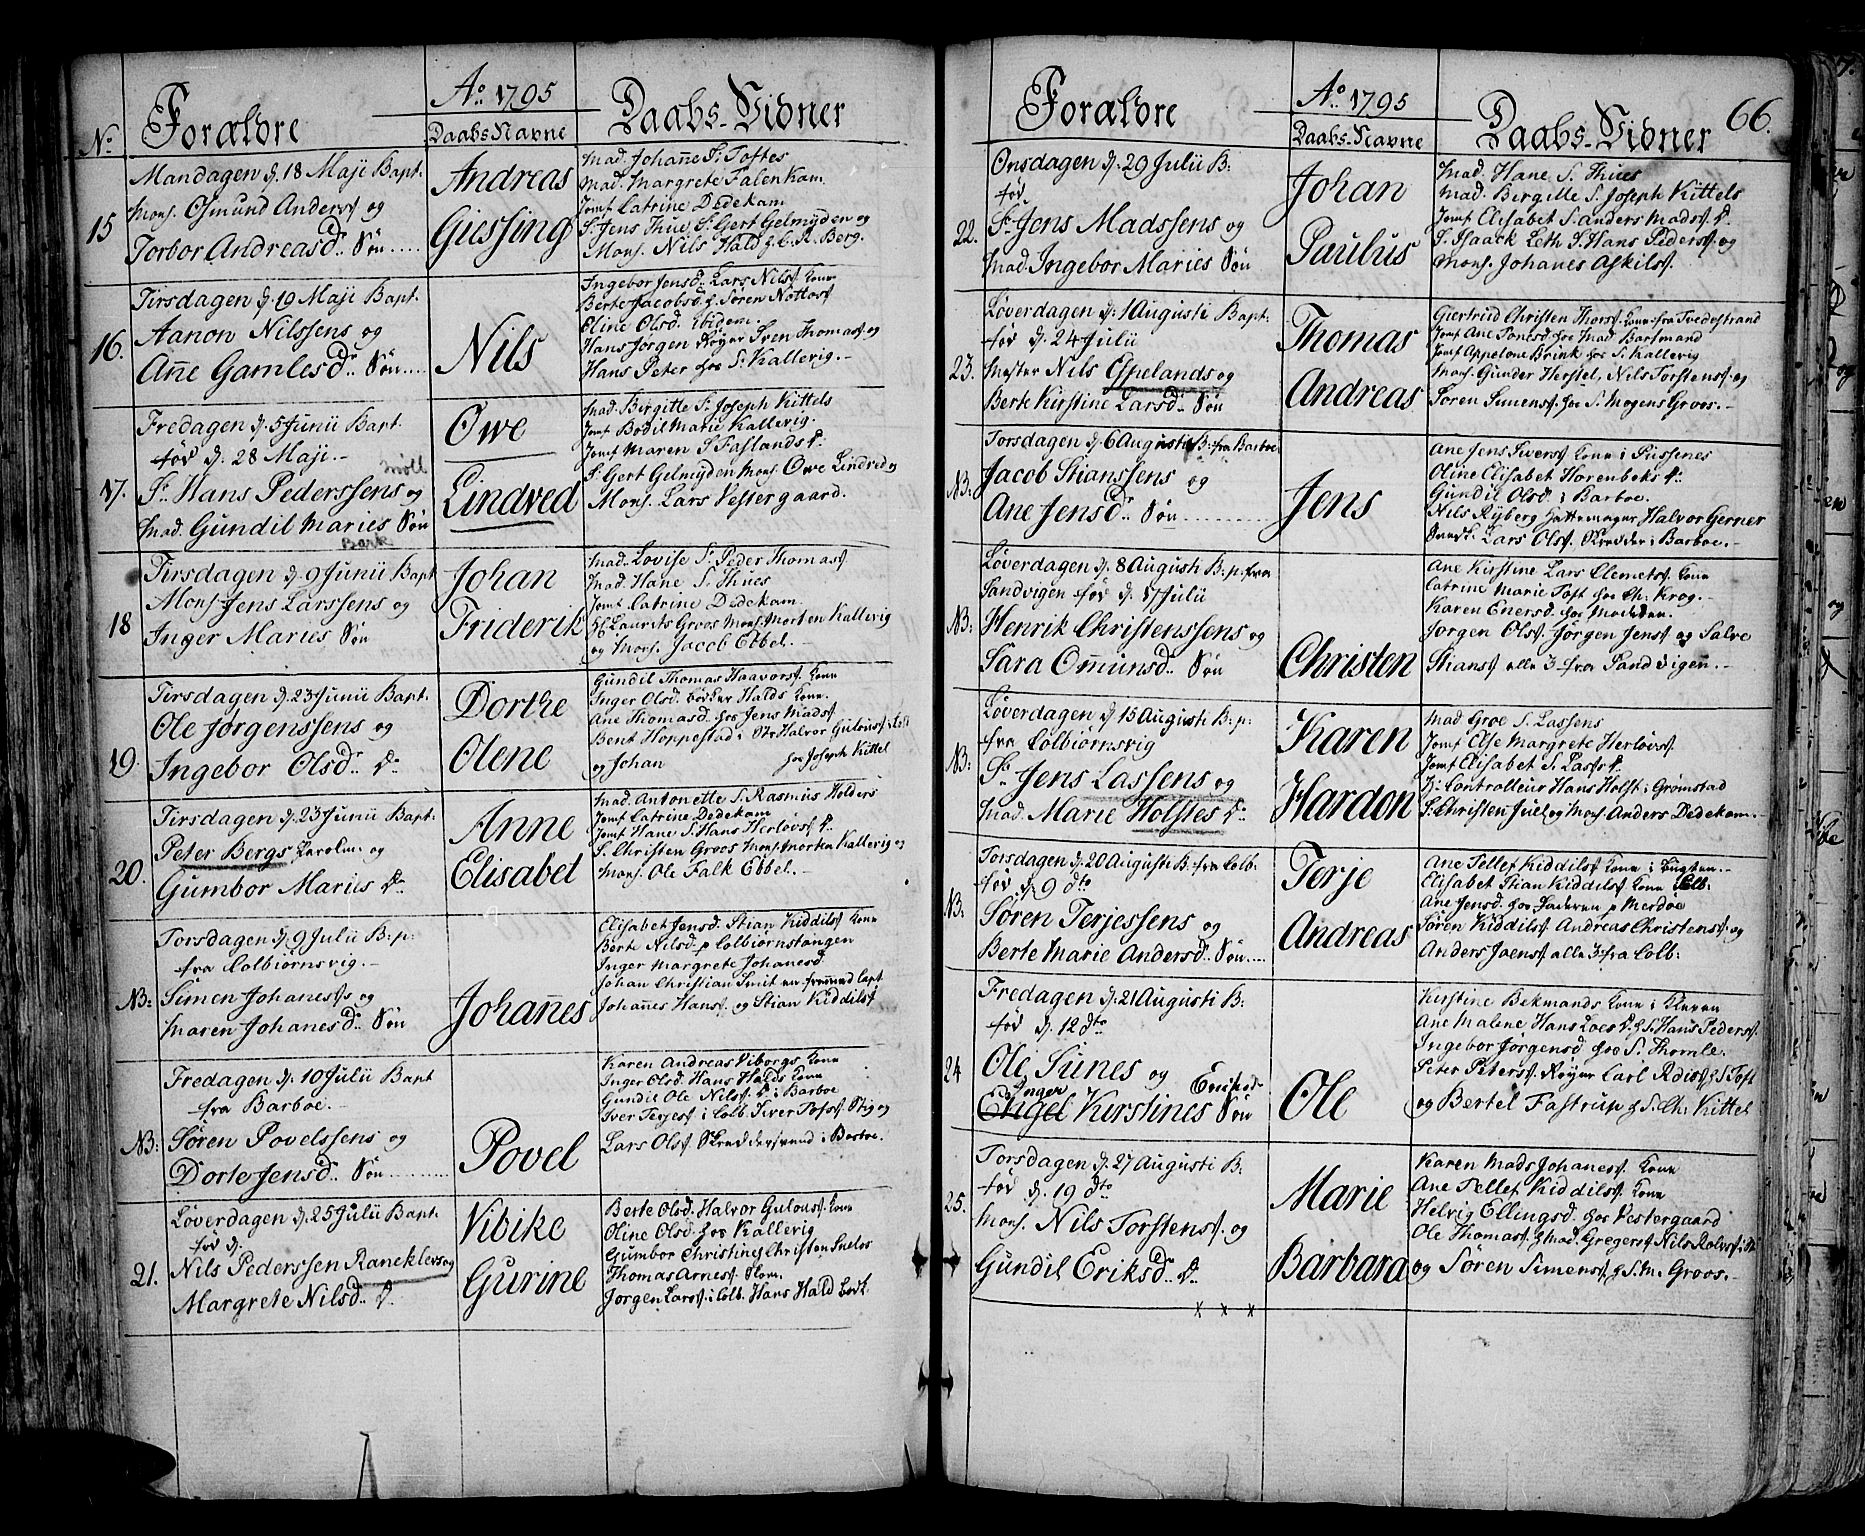 No Forældre
Ao. 1795
Daabs-Navne
Daabs-Vidner
15
Mandagen d. 18 Maji Bapt.
Mons. Osmund Anders. og
Torbor Andreasd. Søn
Andreas
Giessing
Mad. Johañe S. Toftes
Mad. Margrete Falenkam.
Jomf Catrine Dedekam
S. Jens Thue, S. Gert Gelmyden og
Mons. Nils Hald
16.
Tirsdagen d. 19 Maji Bapt.
Aanon Nilssens og
Añe Gamlesd. Søn
Nils
Ingebor Jensd. Lars Nilss. Kone
Berte Jacobsd.
Eline Olsd. ibidem.
Hans Jørgen Røyer Sven Thomass. og
Hans Peter hos S. Kallevig.
17.
Fredagen d. 5 Junii Bapt.
fød d. 28 Maji
Sr. Hans Pederssens og
møll
Mad. Gundil Maries Søn
Bark
Owe
Lindved
Mad. Birgitte S. Joseph Kittels
Jomf Bodil Marie Kallevig.
Jomf Maren S. Faslands D.
S. Gert Gelmyden Mons. Owe Lindved og
Mons. Lars Vestergaard.
18
Tirsdagen d. 9 Junii Bapt
Mons. Jens Larssens og
Inger Maries Søn
Johan
Friderik
Mad. Lovise S. Peder Thomass
Mad. Hane S. Thues
Jomf Catrine Dedekam.
Laurits Groos Mons. Morten Kallevig
og Mons. Jacob Ebbel.
19.
Tirsdagen d. 23 Junii Bapt.
Ole Jørgenssens og
Ingebor Olsd. D.
Dorthe
Olene
Gundil Thomas Haavors. Kone
Inger Olsd. bødker Halds Kone.
Ane Thomasd. hos Jens Mads.
Bent Hoppestad
og Johan hos Joseph Kittel
20.
Tirsdagen d. 23 Junii Bapt.
Peter Bergs og
Gumbor Maries D.
Anne
Elisabet
Mad. Antonette S. Rasmus Holders
Jomf Catrine Dedekam
Jomf Hane S. Hans Herløvs D.
S. Christen Groos Mons. Morten Kallevig og
Mons. Ole Falk Ebbel.
NB:
Torsdagen d. 9 Julii B: p:
fra Colbiørnsvig.
Simen Johaness. og
Maren Johanesd. Søn
Johañes
Elisabet Jensd. Stian Kiddils. Kone
Berte Nilsd. p Colbiørnstangen
Inger Margrete Johanesd.
Johan Christian Smit en fremmed Capt.
Johañes Hans. og Stian Kiddils.
NB:
Fredagen d. 10 Julii Bapt
fra Barboe.
Søren Povelssens og
Dorte Jensd. Søn
Povel
Karen Andreas Viborgs Kone
Inger Olsd. Hans Halds Kone
Gundil Ole Nils. D. i Barboe
Iver Terjes. i Colb.
Lars Ols. Skreddersvend i Barboe.
21.
Løverdagen d. 25 Julii Bapt.
fød d.
Nils Pederssen Raneklevs og
Margrete Nilsd. D.
Vibike
Gurine
Berte Olsd. Halvor Gulous. Kone
Oline Olsd. hos Kallevig
Gumbor Christine
Thomas Arnes.
Jørgen Lars. i Colb. Hans Hald
Forældre
Ao. 1795
Daabs-Navne
Daabs-Vidner
66.
22.
Onsdagen d. 29 Julii B:
fød
Sr. Jens Madssens og
Mad. Ingebor Maries Søn
Johan
Paulus
Mad. Hane S. Thues
Mad. Birgitte S. Joseph Kittels
Jomf Elisabet S. Anders Mads. D.
S. Isaack Leth S. Hans Peders. og
Mons. Johanes Askils.
23.
Løverdagen d. 1 Augusti Bapt.
fød d. 24 Julii
Mester Nils Espelands og
Berte Kirstine Larsd. Søn
Thomas
Andreas
Giertrud Christen Thors. Kone fra Tvedestrand
Jomf Ane Tonesd. hos Mad Barsmand
Jomf Appelone Brink hos S. Kallevig
Mons. Gunder Herstel, Nils Torstens. og
Søren Simens. hos S. Mogens Groos.
NB:
Torsdagen d. 6 Augusti B: fra Barboe
Jacob Stianssens og
Ane Jensd. Søn
Jens
Ane Jens Ivers. Kone i
Oline Elisabet Horenbeks D.
Gundil Olsd. i Barboe.
Nils Ryberg Hattemager Halvor Gerner
Lars Ols. Skredder i Barboe.
NB:
Løverdagen d. 8 Augusti B: p: fra
Sandvigen fød d. 17 Julii
Henrik Christenssens og
Sara Omunsd. Søn
Christen
Ane Kirstine Lars Clemets. Kone
Catrine Marie Toft hos Ch: Krog.
Karen Enersd. hos Moderen
Jørgen Ols. Jørgen Jens. og Salve
Stians. alle 3 fra Sandvigen.
NB:
Løverdagen d. 15 Augusti B: p:
fra Colbiørnsvig
Sr. Jens Lassens og
Mad. Marie Holstes D.
Karen
Hardon
Mad Groe S. Lassens
Jomf Else Margrete Herløvs.
Jomf Elisabet S. Lass. D.
H: Controlleur Hans Holst i Grømstad
S. Christen Juel og Mons Anders Dedekam.
NB:
Torsdagen d. 20 Augusti B: fra Colb.
fød d. 9 dto
Søren Terjessens og
Berte Marie Andersd. Søn
Terje
Andreas
Ane Tellef Kiddils. Kone i
Elisabet Stian Kiddils. Kone i Colb:
Ane Jensd. hos Faderen p Merdøe
Søren Kiddils. Andreas Christens. og
Anders Joens. alle 3 fra Colb:
24
Fredagen d. 21 Augusti B:
fød d. 12 dto
Ole Sunes og
Inger
Engel Kirstines Søn
Ole
Kirstine Bekmands Kone i
Ane Malene Hans Loes D. h. S. Hans Peders.
Ingebor Jørgensd. hos S. Thomle.
Peter Peters. Røyer Carl
og Bertel Fastrup h. S. Ch: Kittel
25.
Torsdagen d. 27 Augusti B:
fød d. 19 dto
Mons. Nils Torstens. og
Gundil Eriksd. D.
Marie
Barbara
Karen Mads Johanes. Kone
Ane Tellef Kiddils. Kone
Helvig Ellingsd. hos Vestergaard
Ole Thomas. h Mad. Gregers. Nils
og Søren Simens. h. S. M. Groos.
x x x